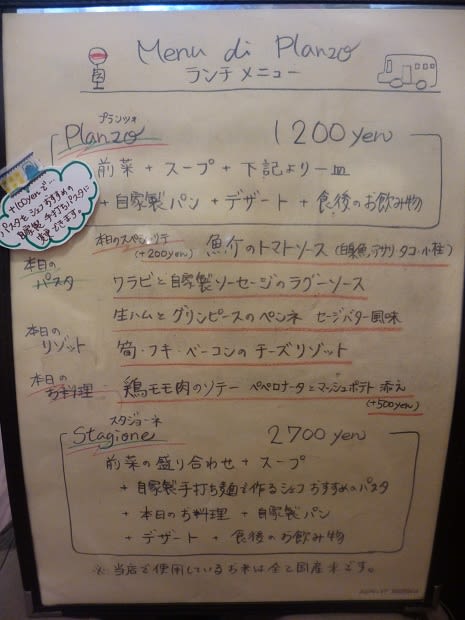 Menu di Planzo
ランチメニュー
プランツォ
Planzo 1200yen
前菜 + スープ + 下記より一皿
+ 自家製パン + デザート + 食後のお飲み物
+100yenで…
パスタをシェフおすすめの
自家製手打ちパスタに
変更できます。
本日のスペシャリテ
(+200yen)
魚介のトマトソース (白身魚,アサリ,タコ,小柱)
本日の
パスタ
ワラビと自家製ソーセージのラグーソース
生ハムとグリンピースのペンネ セージバター風味
本日の
リゾット
筍・フキ・ベーコンのチーズリゾット
本日の
お料理
鶏モモ肉のソテー ペペロナータとマッシュポテト添え
(+500yen)
スタジョーネ
Stagione 2700yen
前菜の盛り合わせ + スープ
+ 自家製手打ち麺で作るシェフおすすめパスタ
+ 本日のお料理 + 自家製パン
+ デザート + 食後のお飲み物
※ 当店で使用しているお米は全て国産米です。